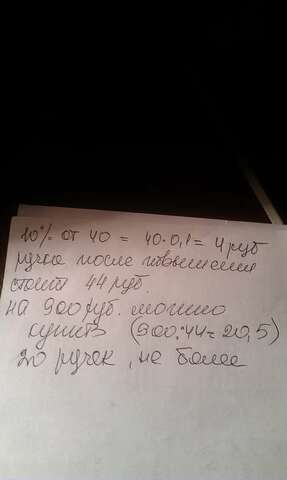 10% от 40 = 40·0,1 = 4 руб
ручка после повышения
стоит 44 руб.
на 900 руб. можно
купить (900:44=20,5)
20 ручек, не более